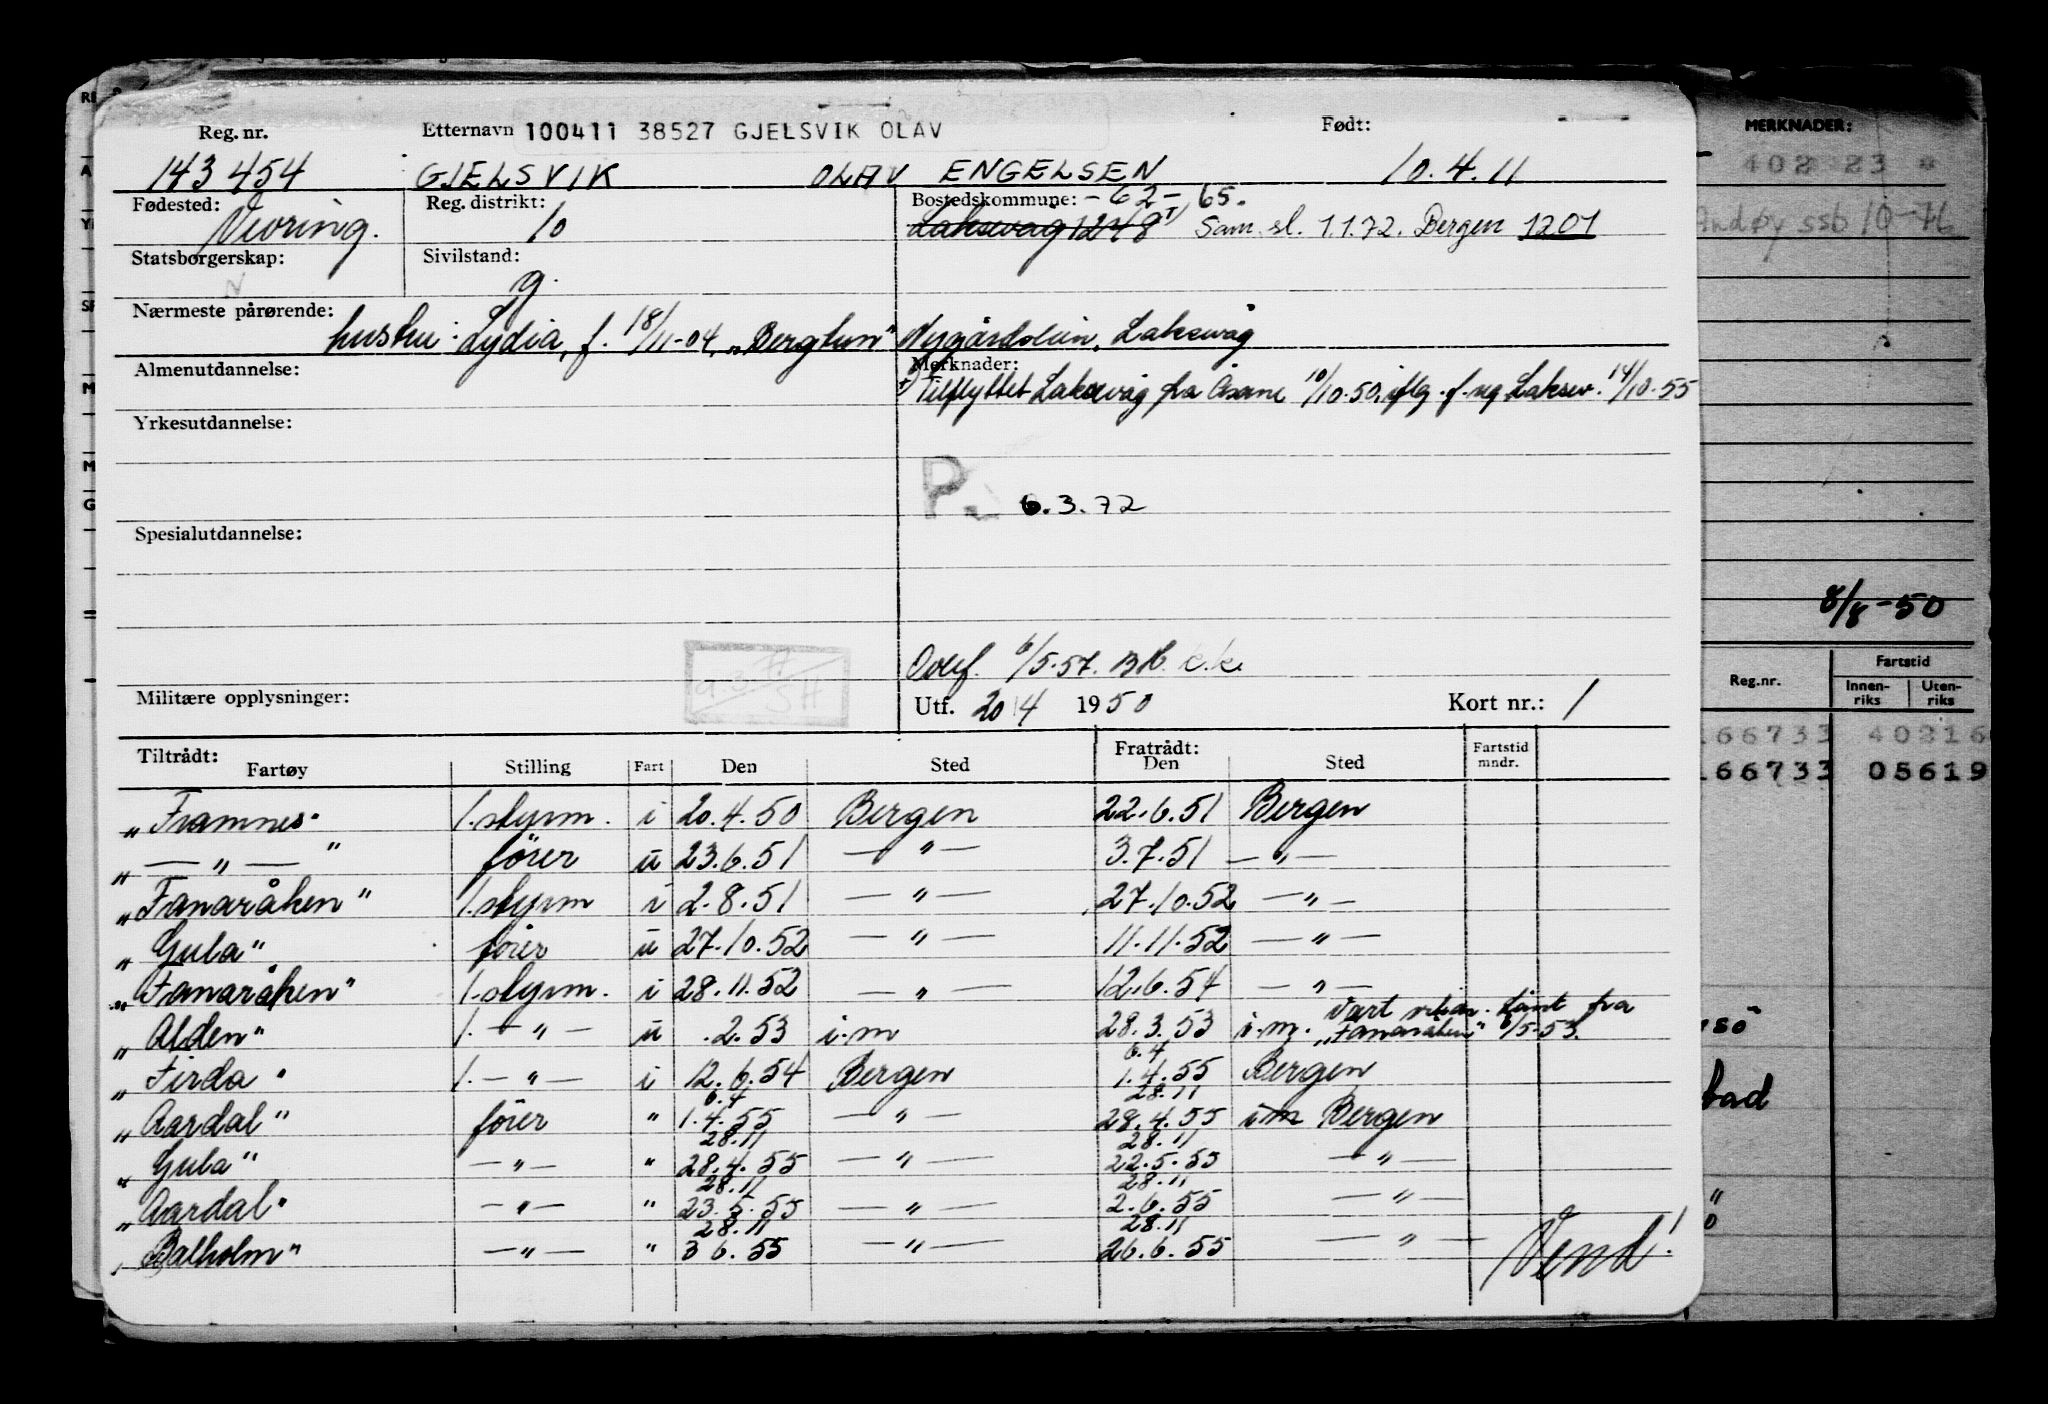 Reg. nr. Etternavn 100411 38527 GJELSVIK OLAV Født:
143454 GJELSVIK OLAV ENGELSEN 10.4.11
Fødested: Reg. distrikt: Bostedskommune: -62-65.
Vevring. 10 Laksevåg 1248 Sam. sl. 1.1.72. Bergen 1201
Statsborgerskap: Sivilstand:
N g.
Nærmeste pårørende:
hustru: Lydia, f. 18/11-04, „Bergtun" Nygårdslien, Laksevåg
Almenutdannelse: Merknader:
Tilflyttet Laksevåg fra Åsane 10/10.50, iflg. f. reg Laksev. 14/10-55
Yrkesutdannelse:
P. 6.3.72
Spesialutdannelse:
Overf. 6/5-57. k.k.
Militære opplysninger: Utf. 20/4 1950 Kort nr.: 1
Tiltrådt: Fratrådt: Fartstid
Fartøy Stilling Fart Den Sted Den Sted mndr.
„Framnes" 1.styrm. i 20.4.50 Bergen 22.6.51 Bergen
„—„—" fører u 23.6.51 —„— 3.7.51 —„—
„Fanaråken" 1.styrm i 2.8.51 —„— 27.10.52 —„—
„Gula" fører u 27.10.52 —„— 11.11.52 —„—
„Fanaråken" 1.styrm. i 28.11.52 —„— 12.6.54 —„—
vært utlån fra
„Alden" 1.—„— u .2.53 i.m 28.3.53 i.m. „Fanaråken" 6/5-53.
6.4
„Firda" 1.—„— i 12.6.54 Bergen 1.4.55 Bergen
6.4 28.11
„Aardal" fører " 1.4.55 —„— 28.4.55 i.m Bergen
28.11 28.11
„Gula" —„— " 28.4.55 —„— 22.5.55 —„—
28.11 28.11
„Aardal" —„— " 23.5.55 —„— 2.6.55 —„—
28.11 28.11
„Balholm" —„— " 3 6.55 —„— 26.6.55 —„—
Vend!
MERKNADER:
402 23 "
Andøy ssb 10-76
8/8-50
Fartstid
Reg.nr. Innen-riks Uten-riks
166733 40216
166733 05619
sö
bad
"